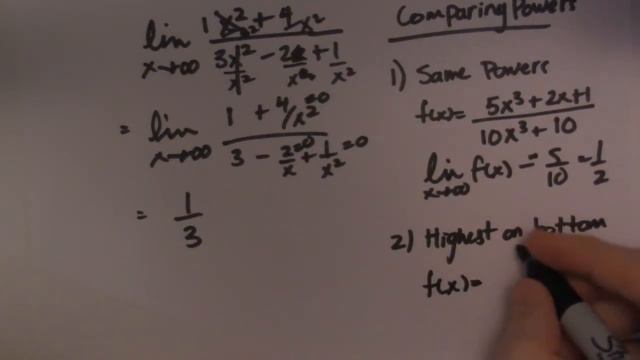 lim x→∞ (1x²/x² + 4/x²) / (3x²/x² - 2x/x² + 1/x²)
= lim x→∞ (1 + 4/x² =0) / (3 - 2/x =0 + 1/x² =0)
= 1/3
Comparing Powers
1) Same Powers
f(x)= (5x³+2x+1) / (10x³+10)
lim x→∞ f(x) = 5/10 = 1/2
2) Highest on bottom
f(x)=